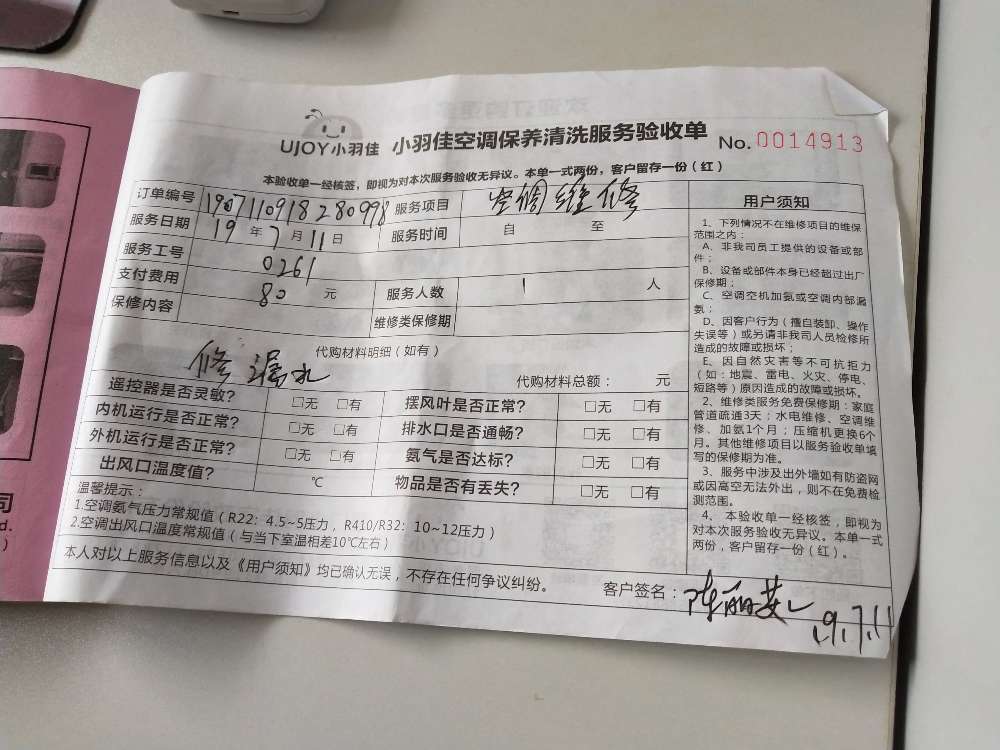 UJOY小羽佳 小羽佳空调保养清洗服务验收单 No. 0014913
本验收单一经核签，即视为对本次服务验收无异议。本单一式两份，客户留存一份（红）
订单编号 1907110918280998 服务项目 空调维修
服务日期 19 年 7 月 11 日 服务时间 自 至
服务工号 0261
支付费用 80 元 服务人数 1 人
保修内容 维修类保修期
代购材料明细（如有）
修漏水 代购材料总额： 元
遥控器是否灵敏? □无 □有 摆风叶是否正常? □无 □有
内机运行是否正常? □无 □有 排水口是否通畅? □无 □有
外机运行是否正常? □无 □有 氨气是否达标? □无 □有
出风口温度值? ℃ 物品是否有丢失? □无 □有
温馨提示：
1.空调氨气压力常规值（R22：4.5~5压力，R410/R32：10~12压力）
2.空调出风口温度常规值（与当下室温相差10℃左右）
本人对以上服务信息以及《用户须知》均已确认无误，不存在任何争议纠纷。 客户签名：陈丽英 19.7.11
用户须知
1、下列情况不在维修项目的维保
范围之内：
A、非我司员工提供的设备或部
件；
B、设备或部件本身已经超过出厂
保修期；
C、空调空机加氨或空调内部漏
氨；
D、因客户行为（擅自装卸、操作
失误等）或另请非我司人员检修所
造成的故障或损坏；
E、因自然灾害等不可抗拒力
（如：地震、雷电、火灾、停电、
短路等）原因造成的故障或损坏。
2、维修类服务免费保修期：家庭
管道疏通3天；水电维修、空调维
修、加氨1个月；压缩机更换6个
月。其他维修项目以服务验收单填
写的保修期为准。
3、服务中涉及出外墙如有防盗网
或因高空无法外出，则不在免费检
测范围。
4、本验收单一经核签，即视为
对本次服务验收无异议。本单一式
两份，客户留存一份（红）。
司
d.
)